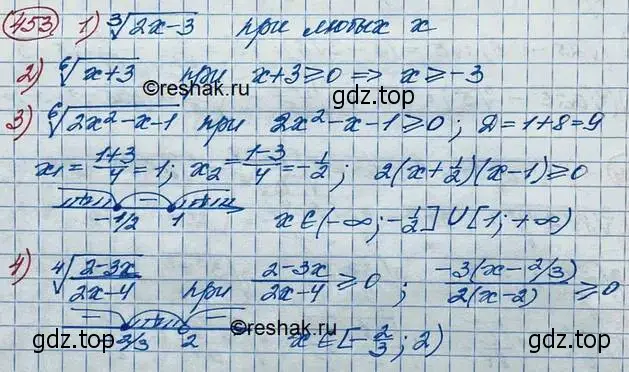 453 1) ∛(2x-3) при любых x
2) ⁶√(x+3) при x+3≥0 => x≥-3
©reshak.ru
gdz.top gdz.top
3) ⁶√(2x²-x-1) при 2x²-x-1≥0; D=1+8=9
x₁ = (1+3)/4 = 1; x₂ = (1-3)/4 = -1/2; 2(x+1/2)(x-1)≥0
-1/2 1 x∈(-∞; -1/2]∪[1; +∞)
4) ⁴√((2-3x)/(2x-4)) при (2-3x)/(2x-4) ≥0; (-3(x-2/3))/(2(x-2)) ≥0
©reshak.ru
2/3 2 x∈[-2/3; 2)
gdz.top gdz.top gdz.top